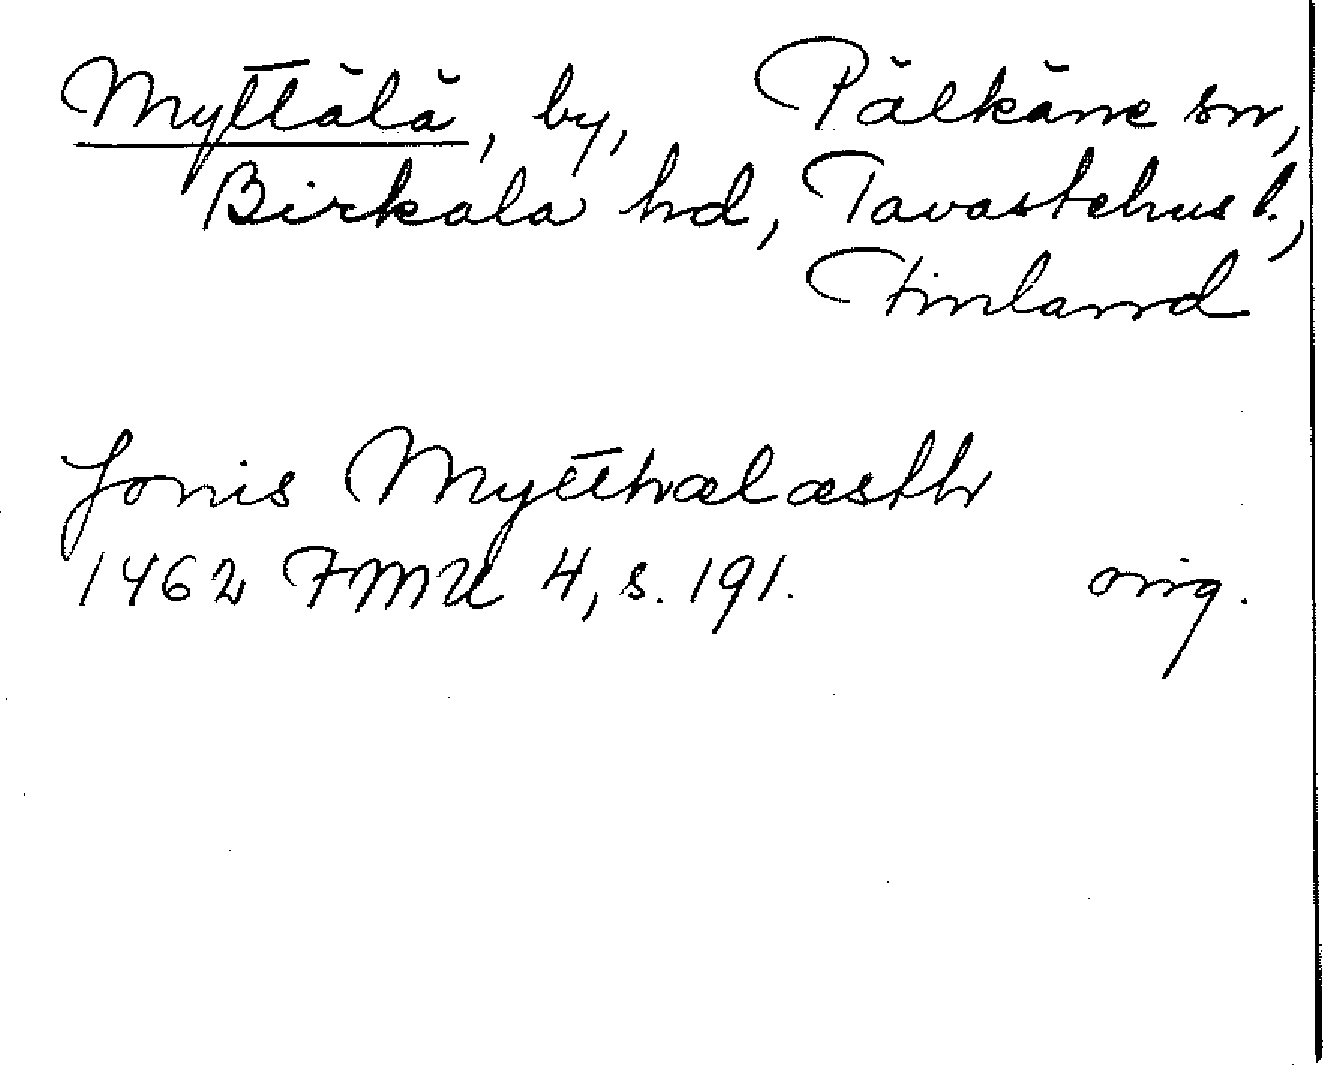 Myttälä, by, Pälkäne sn,
Birkala hd, Tavastehus l.,
Finland
Jonis Mytthælæsth
1462 FMU 4, s. 191. orig.